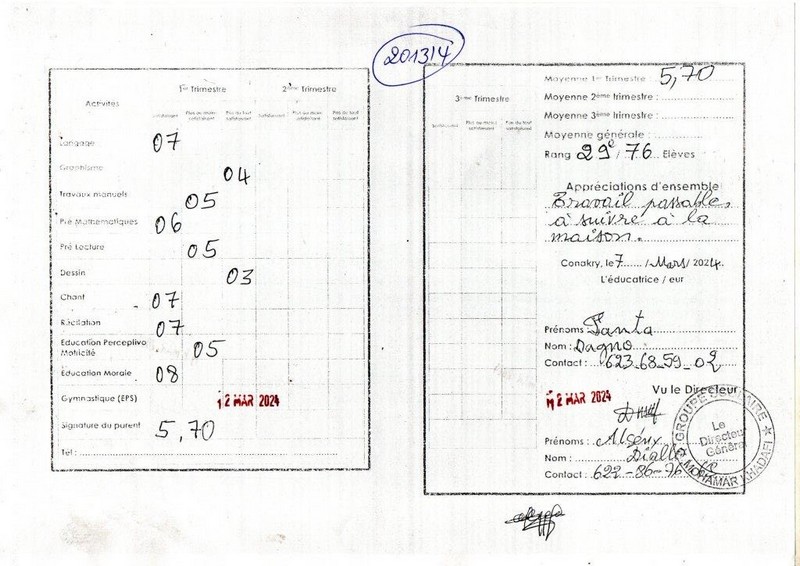 201314
1er Trimestre
2ème Trimestre
Activités
Satisfaisant
Plus ou moins satisfaisant
Pas du tout satisfaisant
Satisfaisant
Plus ou moins satisfaisant
Pas du tout satisfaisant
Langage 07
Graphisme 04
Travaux manuels 05
Pré Mathématiques 06
Pré Lecture 05
Dessin 03
Chant 07
Récitation 07
Education Perceptivo
Motricité 05
Education Morale 08
Gymnastique (EPS) 12 MAR 2024
Signature du parent 5,70
Tél :
3ème Trimestre
Satisfaisant
Plus ou moins satisfaisant
Pas du tout satisfaisant
Moyenne 1er Trimestre : 5,70
Moyenne 2ème trimestre :
Moyenne 3ème trimestre :
Moyenne générale :
Rang 29e / 76 Elèves
Appréciations d'ensemble
Travail passable,
à suivre à la
maison.
Conakry, le 7 / Mars / 2024.
L'éducatrice / eur
Prénoms : Fanta
Nom : Dagno
Contact : 623-68-59-02
12 MAR 2024
Vu le Directeur
Prénoms : Alsény
Nom : Diallo
Contact : 622-86-76
GROUPE SCOLAIRE
Le
Directeur
Général
MOHAMAR KHADAFI